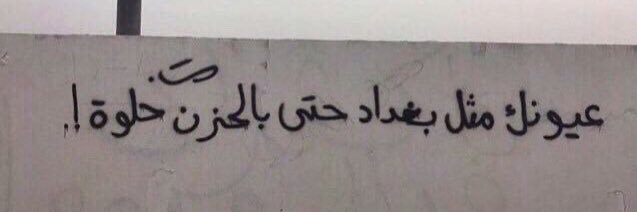 عيونك مثل بغداد حتى بالحزن حلوة !.